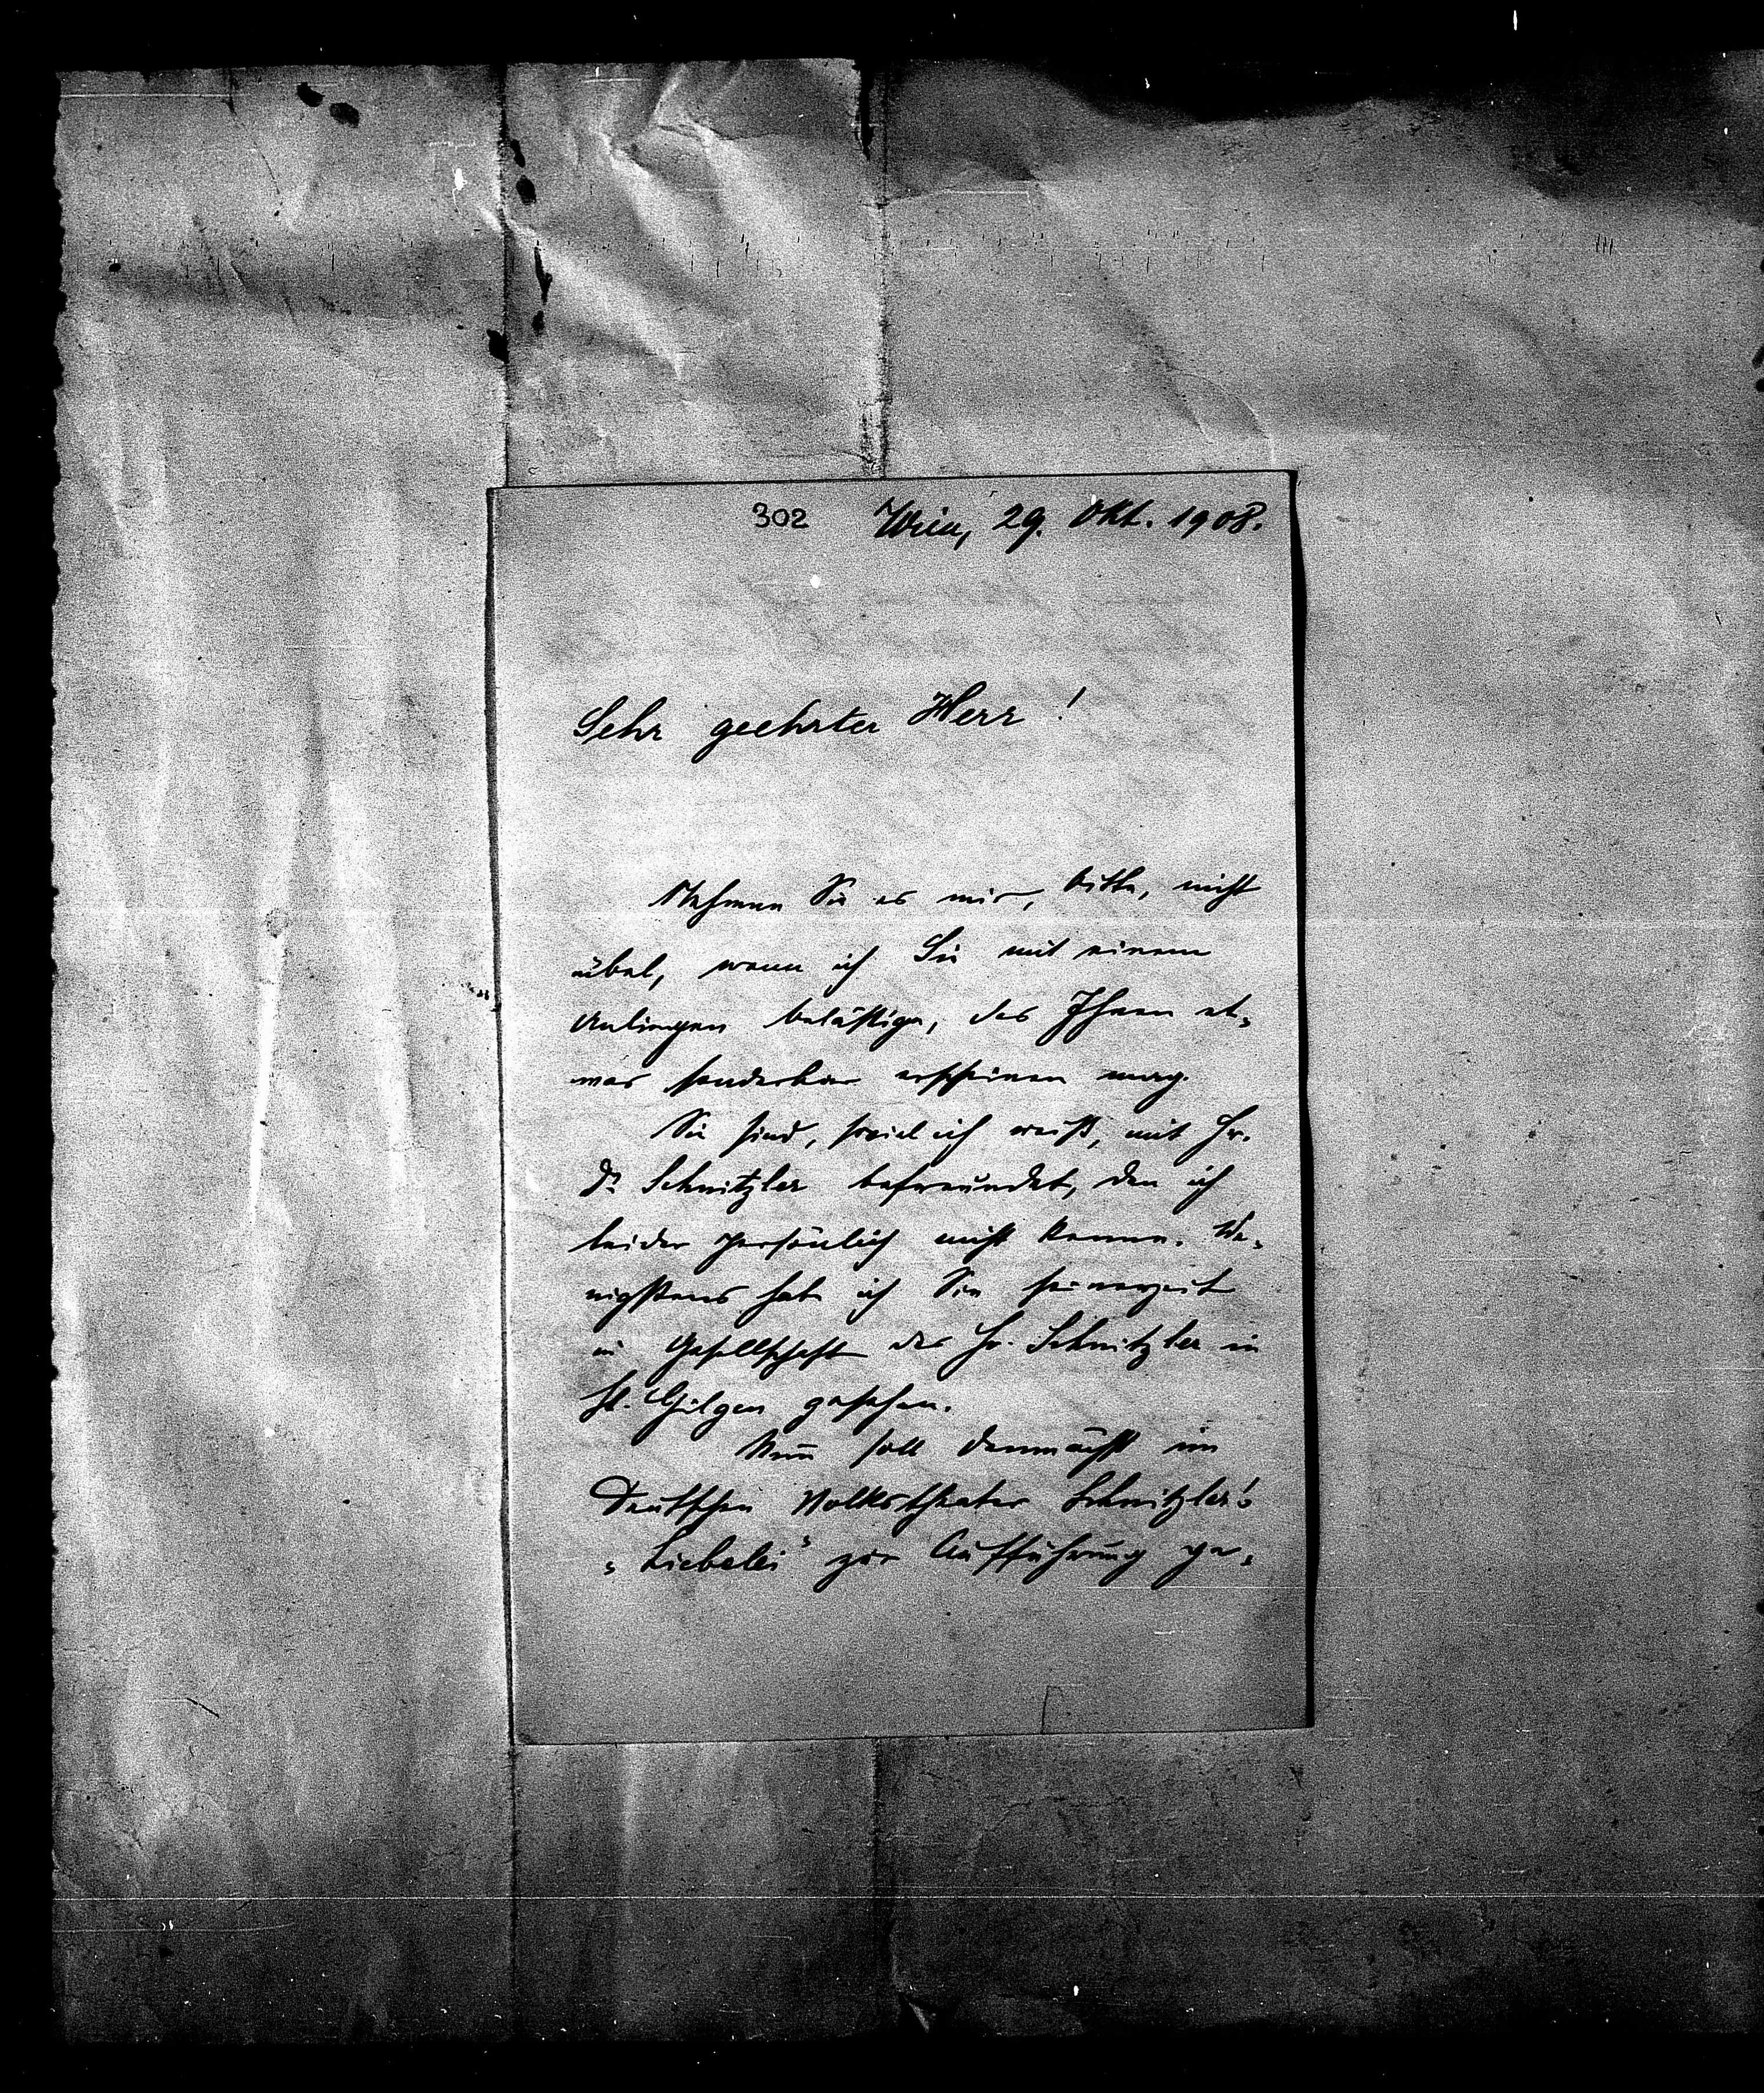 302 Wien, 29. Okt. 1908.
Sehr geehrter Herr!
Nehmen Sie es mir, bitte, nicht
übel, wenn ich Sie mit einem
Anliegen belästige, das Ihnen et-
was sonderbar erscheinen mag.
Sie sind, soviel ich weiß, mit Hr.
Dr. Schnitzler befreundet, den ich
leider persönlich nicht kenne. We-
nigstens habe ich Sie seinerzeit
in Gesellschaft des Hr. Schnitzler in
St. Gilgen gesehen.
Nun soll demnächst im
Deutschen Volkstheater Schnitzler's
„Liebelei" zur Aufführung ge-